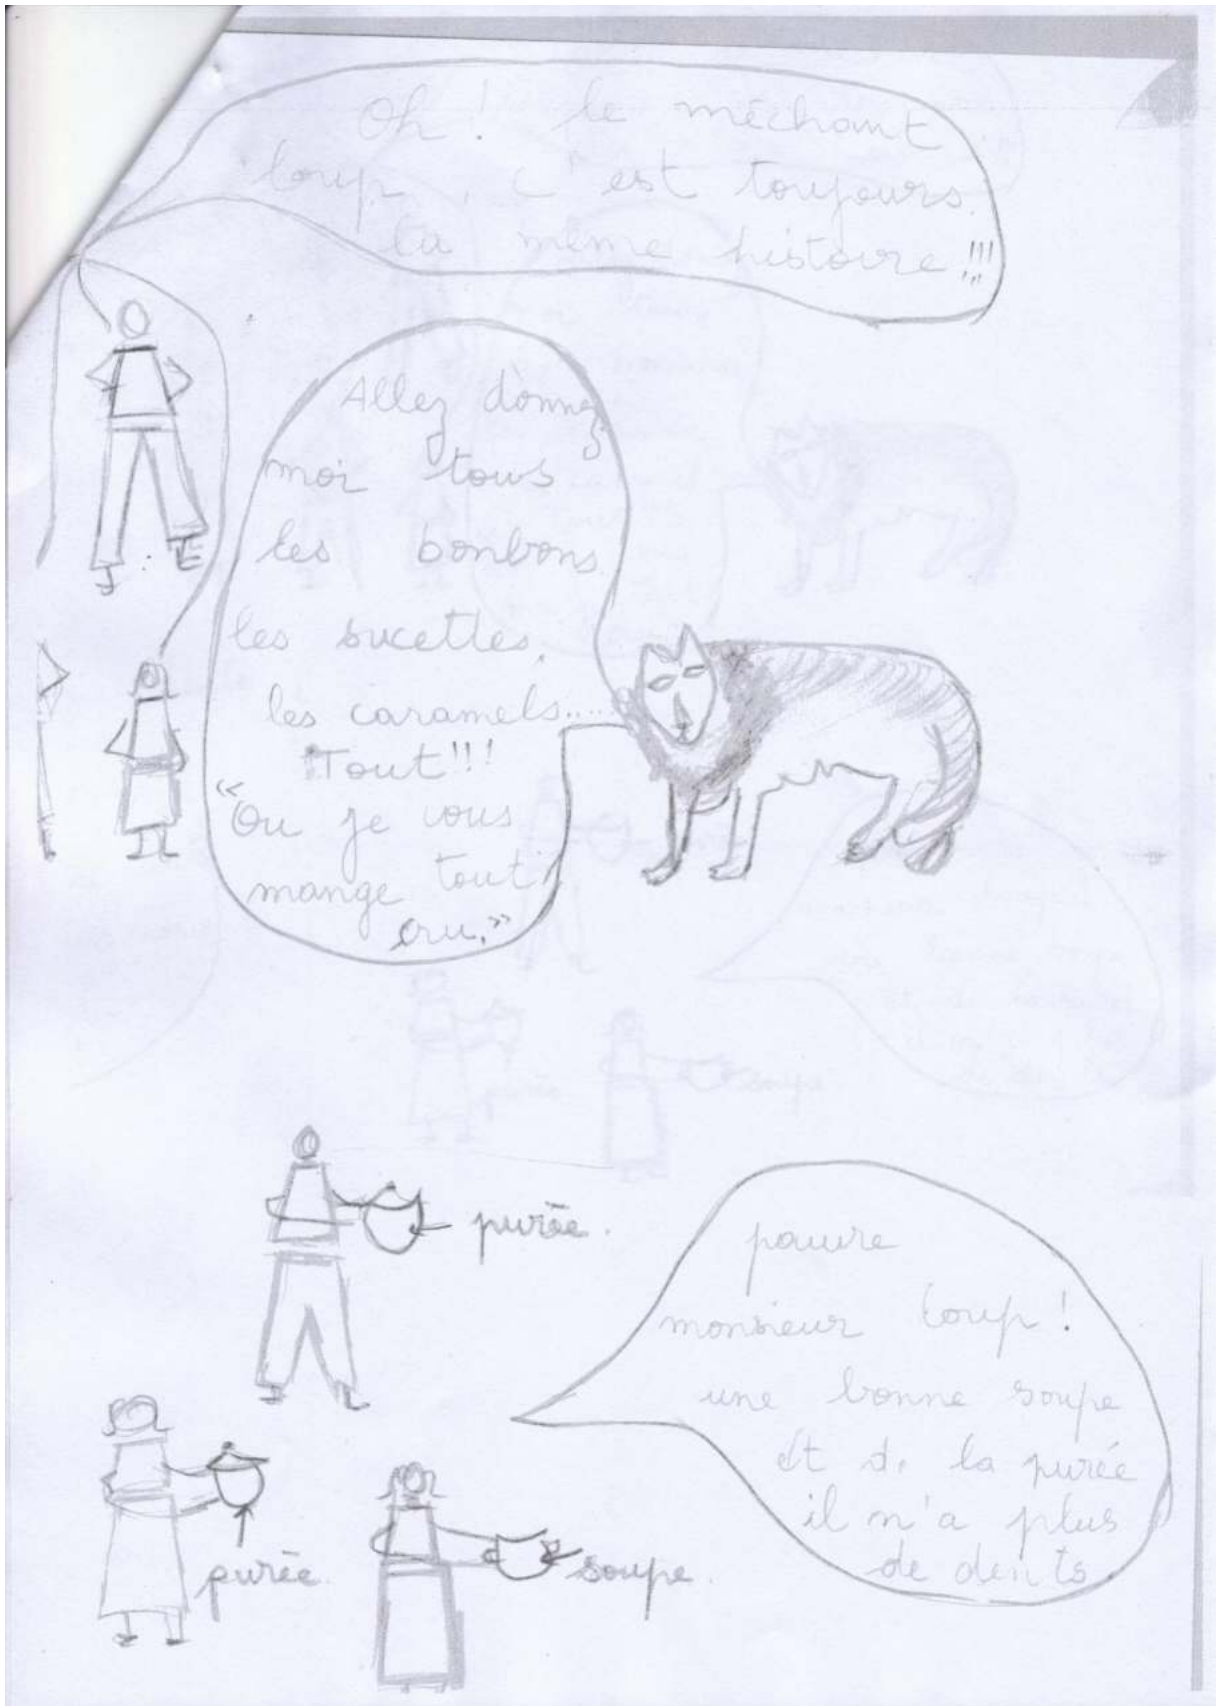 Oh ! le méchant
loup, c'est toujours
la même histoire !!!
Allez donnez
moi tous
les bonbons
les sucettes,
les caramels.....
Tout!!!
"Ou je vous
mange tout
cru."
purée.
pauvre
monsieur loup !
une bonne soupe
et de la purée
il n'a plus
de dents.
purée.
soupe.